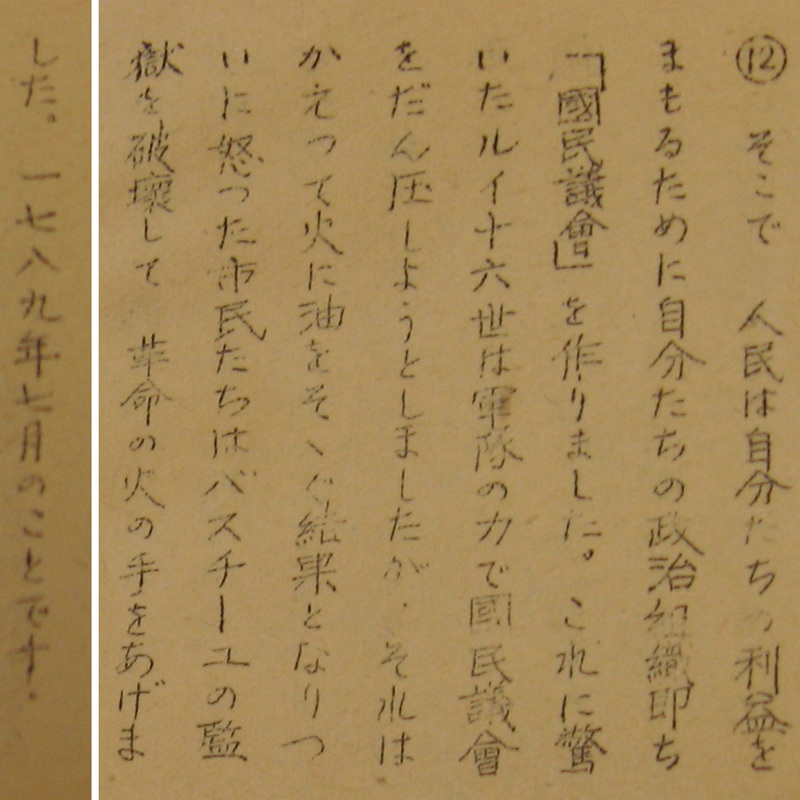 ⑫ そこで 人民は自分たちの利益を
まもるために自分たちの政治組織即ち
「國民議會」を作りました。これに驚
いたルイ十六世は軍隊の力で國民議會
をだん圧しようとしましたが、それは
かえって火に油をそゝぐ結果となりつ
いに怒った市民たちはバスチーユの監
獄を破壞して 革命の火の手をあげま
した。一七八九年七月のことです。